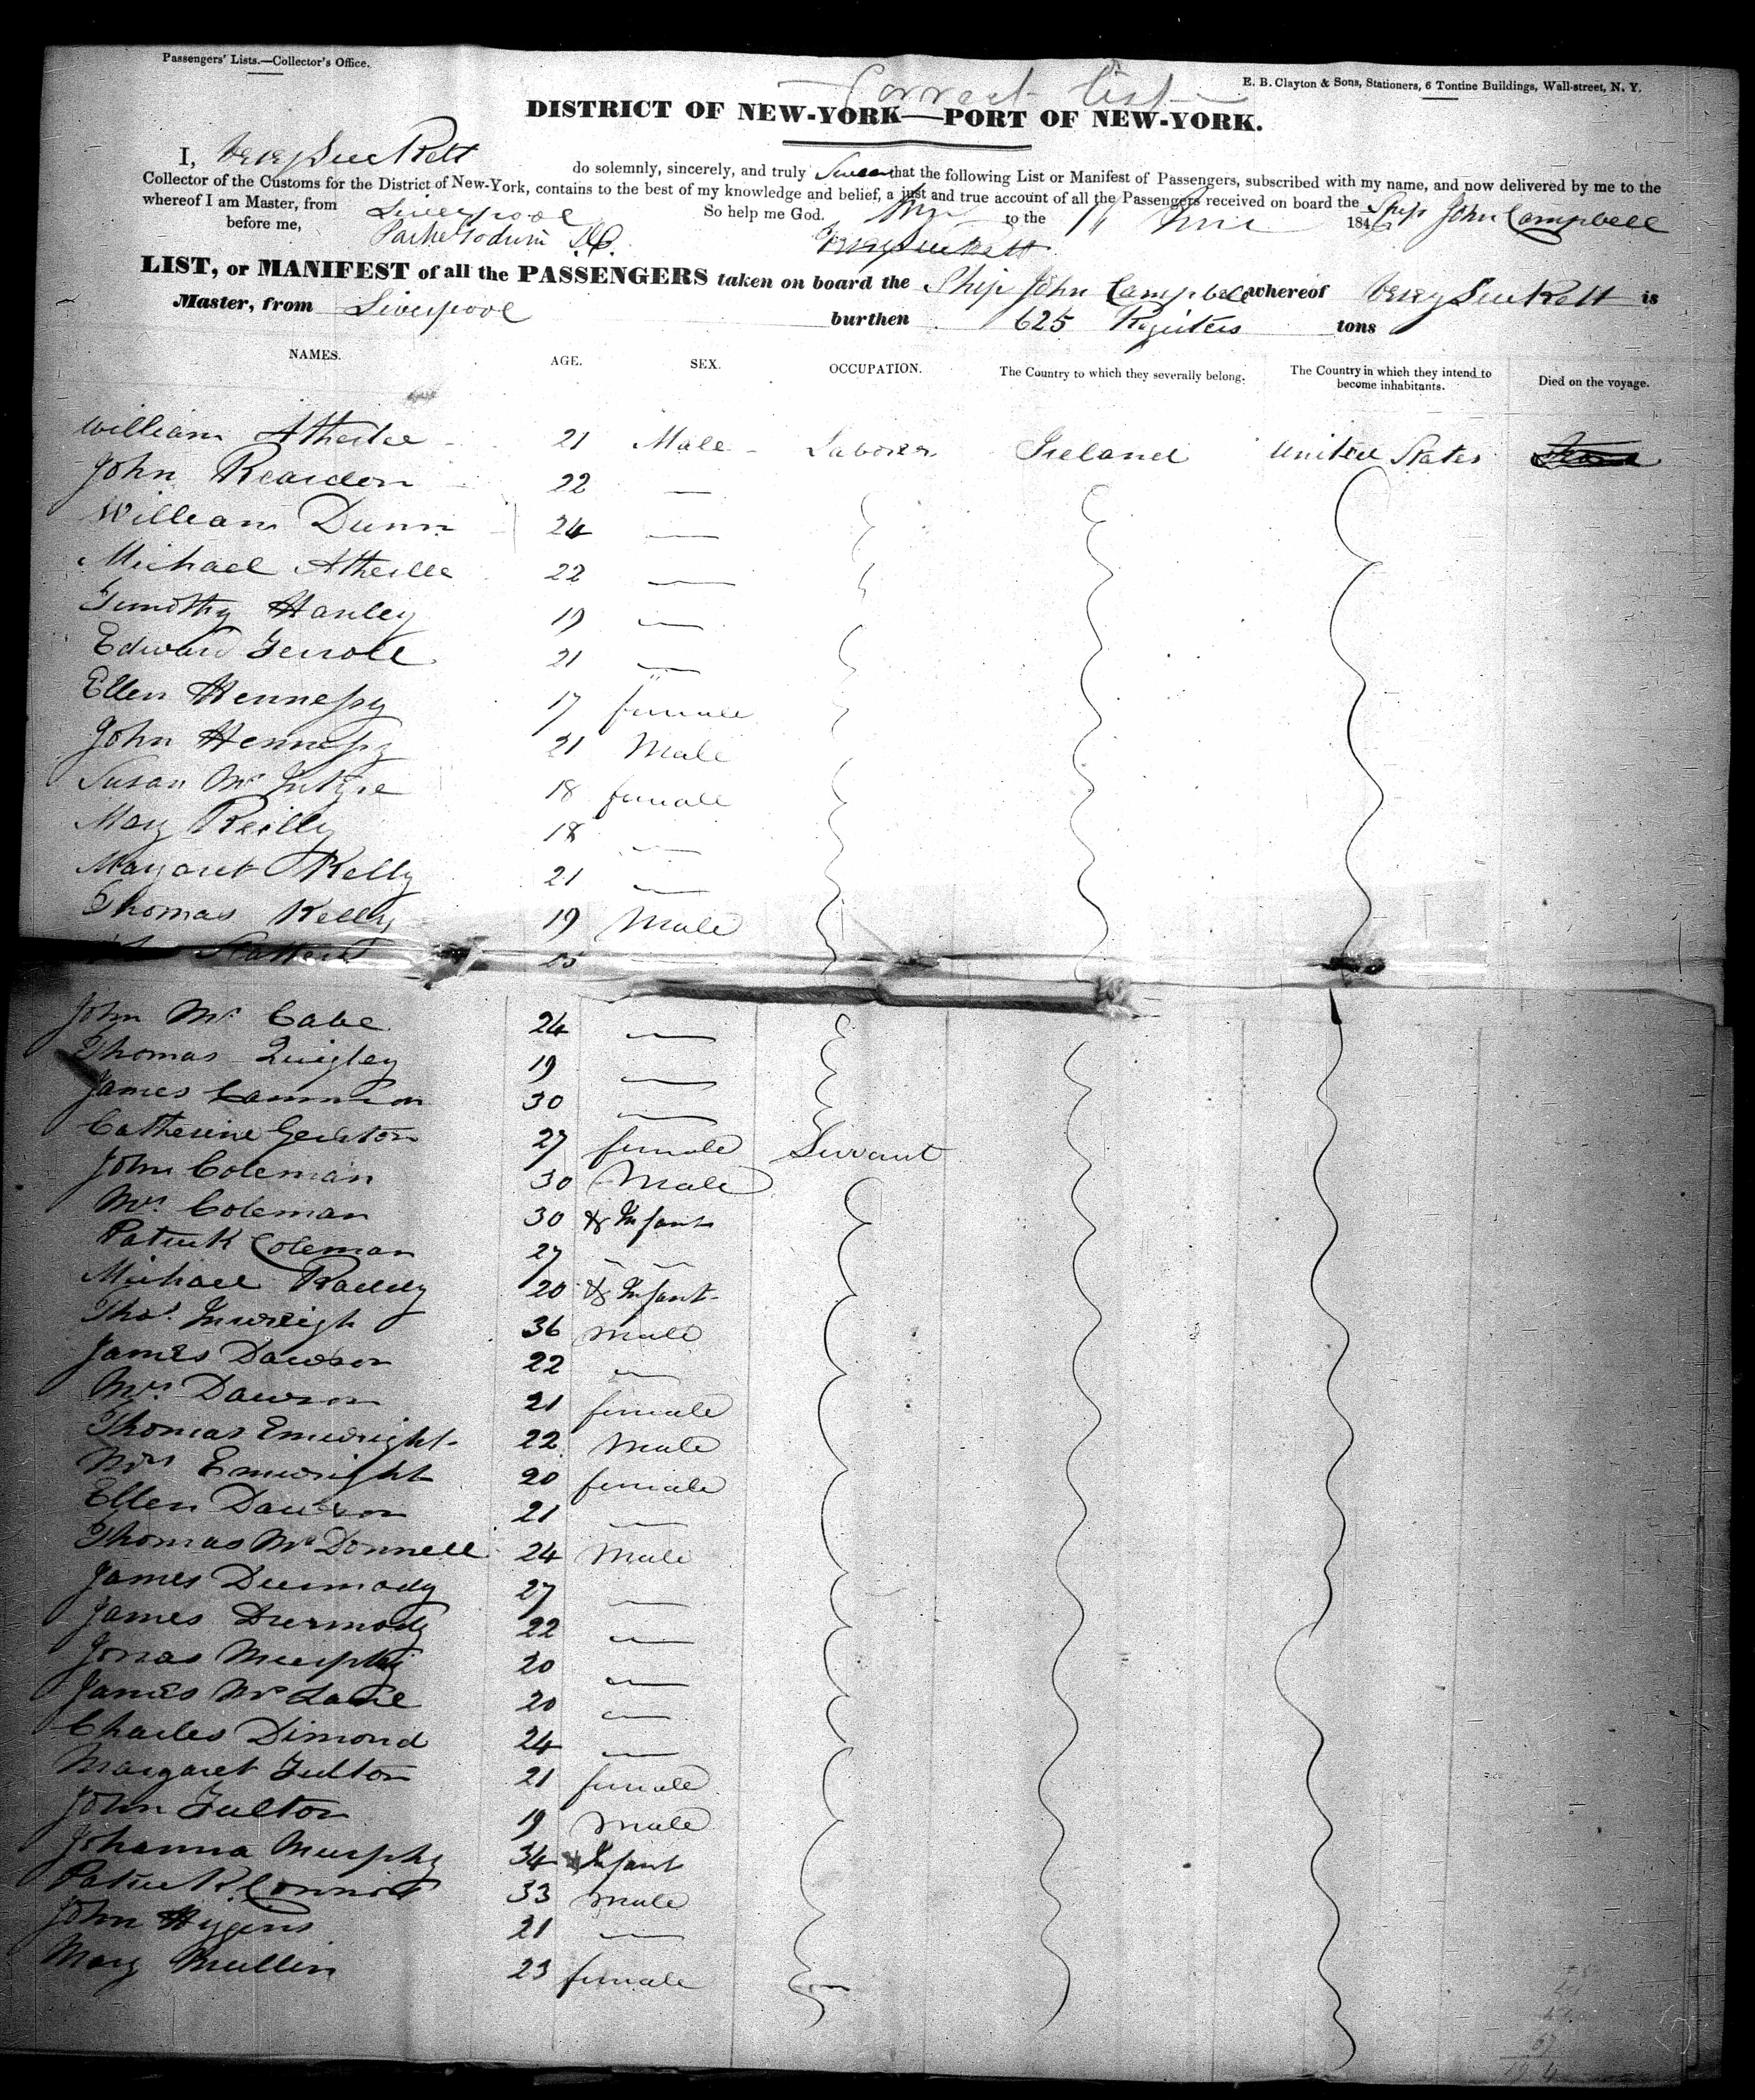 Passengers' Lists.—Collector's Office.
E. B. Clayton & Sons, Stationers, 6 Tontine Buildings, Wall-street, N. Y.
Correct List
DISTRICT OF NEW-YORK—PORT OF NEW-YORK.
I, do solemnly, sincerely, and truly Swear that the following List or Manifest of Passengers, subscribed with my name, and now delivered by me to the
Collector of the Customs for the District of New-York, contains to the best of my knowledge and belief, a just and true account of all the Passengers received on board the Ship John Campbell
whereof I am Master, from Liverpool So help me God.
to the 184
before me,
LIST, or MANIFEST of all the PASSENGERS taken on board the Ship John Campbell whereof is
Master, from Liverpool burthen 625 Registers tons
NAMES. AGE. SEX. OCCUPATION. The Country to which they severally belong. The Country in which they intend to become inhabitants. Died on the voyage.
William 21 Male Laborer Ireland United States
John Reardon 22 —
William Dunn 24 —
Michael 22 —
Timothy Hanley 19 —
Edward 21 —
Ellen Hennessy 17 female
John Hennessy 21 Male
Susan 18 female
Mary Reilly 18 —
Margaret Kelly 21 —
Thomas Kelly 19 Male
25 —
John Mc Cabe 24 —
Thomas Quigley 19 —
James 30 —
Catherine 27 female Servant
John Coleman 30 Male
Mrs Coleman 30 & Infant
Patrick Coleman 27 — —
Michael 20 & Infant
Thos. 36 Male
James Dawson 22 —
Mrs Dawson 21 female
Thomas Emwright 22 Male
Mrs Emwright 20 female
Ellen Dawson 21 —
Thomas Mc Donnell 24 Male
James Durmody 27 —
James Durmody 22 —
Jonas Murphy 20 —
James 20 —
Charles Dimond 24 —
Margaret Fulton 21 female
John Fulton 19 Male
Johanna Murphy 34 & Infant
Patrick Connor 33 Male
John Higgens 21 —
Mary Mullin 23 female